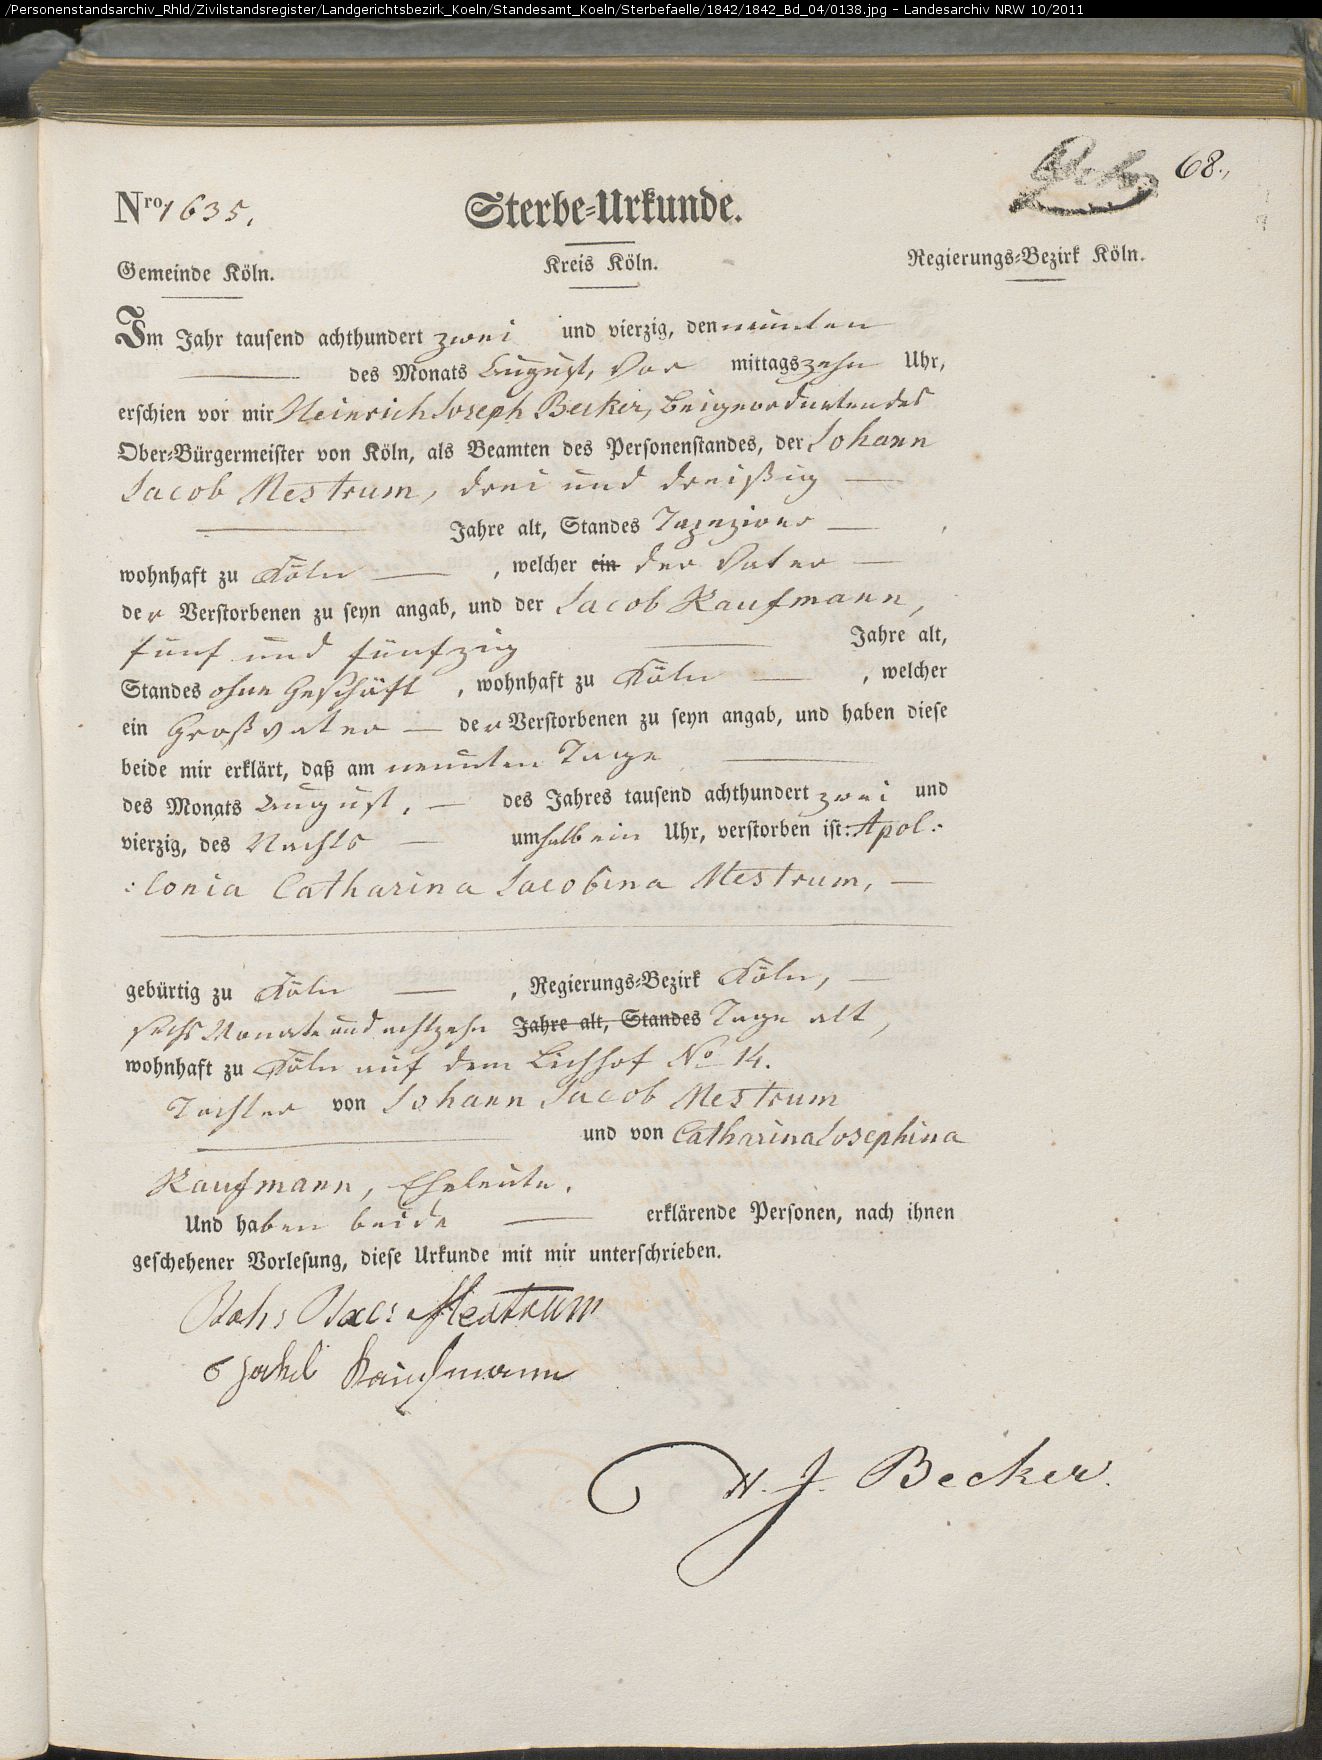 /Personenstandsarchiv_Rhld/Zivilstandsregister/Landgerichtsbezirk_Koeln/Standesamt_Koeln/Sterbefaelle/1842/1842_Bd_04/0138.jpg - Landesarchiv NRW 10/2011
68.
Nro 1635.
Sterbe-Urkunde.
Gemeinde Köln.
Kreis Köln.
Regierungs-Bezirk Köln.
Im Jahr tausend achthundert zwei und vierzig, den neunten
des Monats August, Vor mittags zehn Uhr,
erschien vor mir Heinrich Joseph Becker, Beigeordneten des
Ober-Bürgermeister von Köln, als Beamten des Personenstandes, der Johann
Jacob Mestrum, drei und dreißig
Jahre alt, Standes Tapezirer
wohnhaft zu Köln, welcher ein der Vater
der Verstorbenen zu seyn angab, und der Jacob Kaufmann,
fünf und fünfzig Jahre alt,
Standes ohne Geschäft, wohnhaft zu Köln, welcher
ein Großvater der Verstorbenen zu seyn angab, und haben diese
beide mir erklärt, daß am neunten Tage
des Monats August, des Jahres tausend achthundert zwei und
vierzig, des Nachts um halb ein Uhr, verstorben ist: Apol:
:lonia Catharina Jacobina Mestrum,
gebürtig zu Köln, Regierungs-Bezirk Köln,
sechs Monate und achtzehn Jahre alt, Standes Tage alt,
wohnhaft zu Köln auf dem Lichhof No 14.
Tochter von Johann Jacob Mestrum
und von Catharina Josephina
Kaufmann, Eheleute.
Und haben beide erklärende Personen, nach ihnen
geschehener Vorlesung, diese Urkunde mit mir unterschrieben.
Joh: Jac: Mestrum
Jakob Kaufmann
H. J. Becker